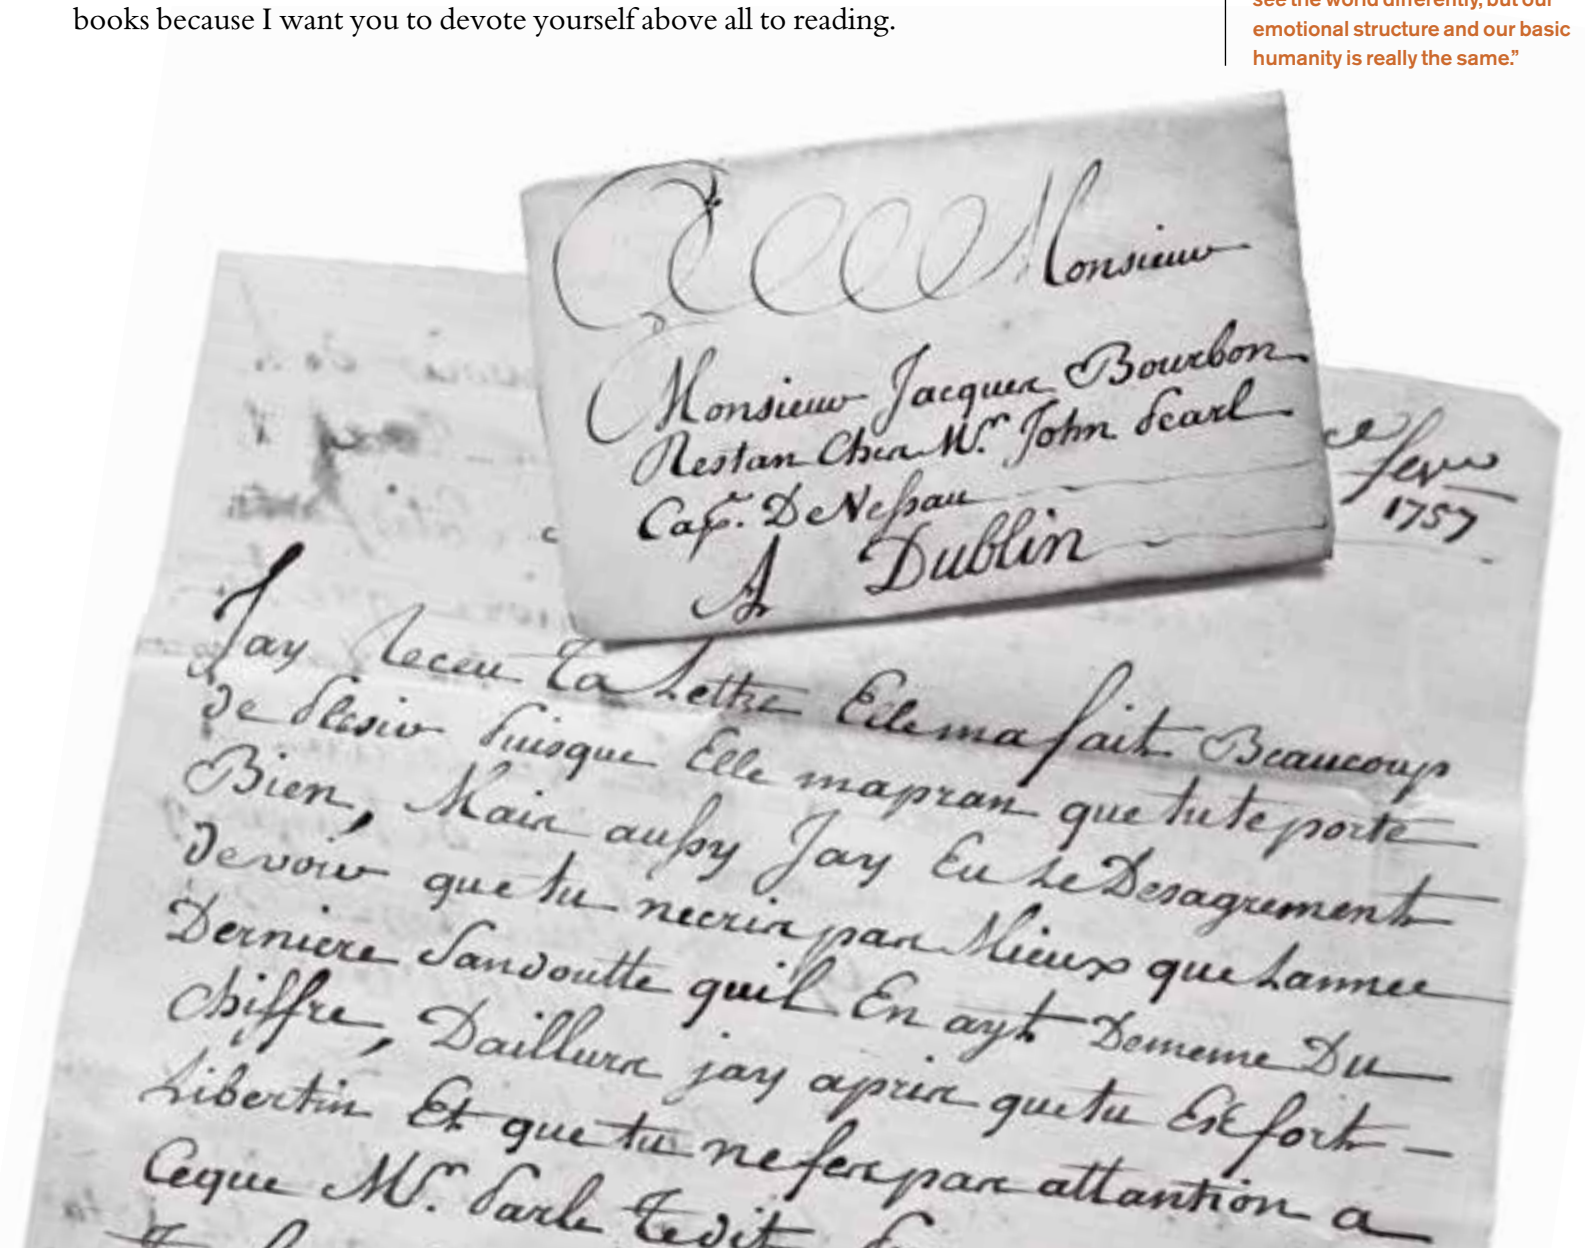 books because I want you to devote yourself above all to reading.
see the world differently, but our
emotional structure and our basic
humanity is really the same.”
Monsieur
Monsieur Jacques Bourbon
Restan Ches Mr. John Pearl
Cap. De Nessau
A Dublin
ce
fevr
1757
Jay Receu Ta Lettre Elle ma fait Beaucoup
de Plesir Puisque Elle mapran que tu te porte
Bien, Mais aussy Jay Eu Le Desagrement
de voir que tu necris pas Mieux que Lannee
Derniere Sandoutte quil En ayt Dememe Du
chiffre, Dailleurs jay apris que tu Est fort
Libertin Et que tu ne fes pas attantion a
Ceque Mr. Parle Te dit